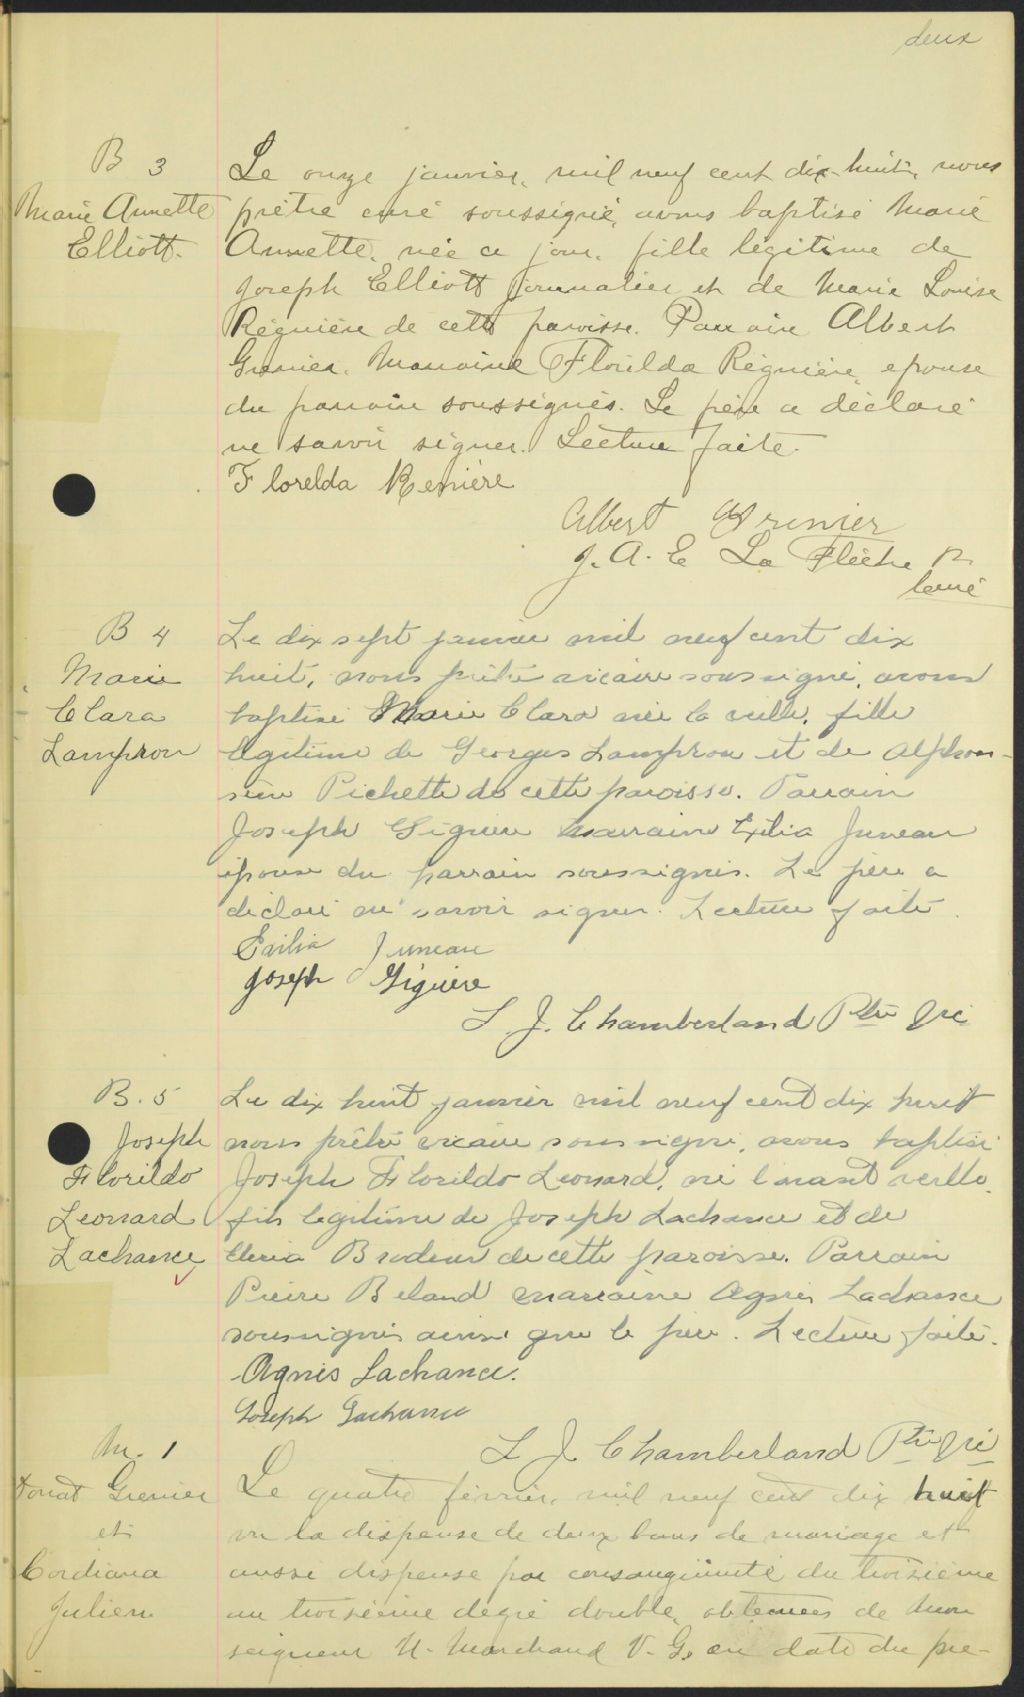 deux
B 3
Marie Annette
Elliott.
Le onze janvier, mil neuf cent dix-huit, nous
prêtre curé soussigné, avons baptisé Marie
Annette, née ce jour, fille légitime de
Joseph Elliott journalier et de Marie Louise
Régnière de cette paroisse. Parrain Albert
Grenier. Marraine Florilda Régnière, epouse
du parrain soussignés. Le père a déclaré
ne savoir signer. Lecture faite.
Florelda Renière
Albert Grenier
J. A. E La Flèche
curé
B 4
Marie
Clara
Lampron
Le dix sept janvier mil neuf cent dix
huit, nous prêtre vicaire soussigné, avons
baptisé Marie Clara née la veille, fille
légitime de Georges Lampron et de Alphon-
sine Pichette de cette paroisse. Parrain
Joseph Giguère marraine Exilia Juneau
épouse du parrain soussignés. Le père a
déclaré ne savoir signer. Lecture faite.
Exilia Juneau
Joseph Giguère
L J. Chamberland Ptre Vic
B. 5
Joseph
Florildo
Leonard
Lachance
Le dix huit janvier mil neuf cent dix huit
nous prêtre vicaire soussigné, avons baptisé
Joseph Florildo Leonard, né l'avant veille,
fils légitime de Joseph Lachance et de
Brodeur de cette paroisse. Parrain
Pierre Beland marraine Agnès Lachance
soussignés ainsi que le père. Lecture faite.
Agnès Lachance.
Joseph Lachance
L J. Chamberland Ptre Vic
M. 1
Donat Grenier
et
Cordiana
Julien
Le quatre février, mil neuf cent dix huit
vu la dispense de deux bans de mariage et
aussi dispense pour consanguinité du troisième
au troisième degré double, obtenues de Mon
seigneur U. Marchand V. G, en date du pre-